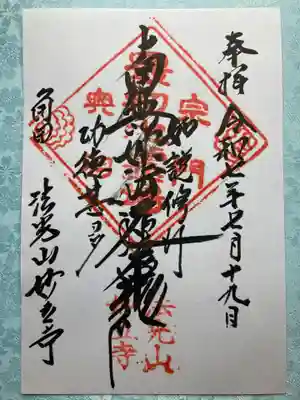 奉拝 令和七年七月十九日
如説修行
南無妙法蓮華経
功徳甚多
法光山妙立寺
宗門
法光山